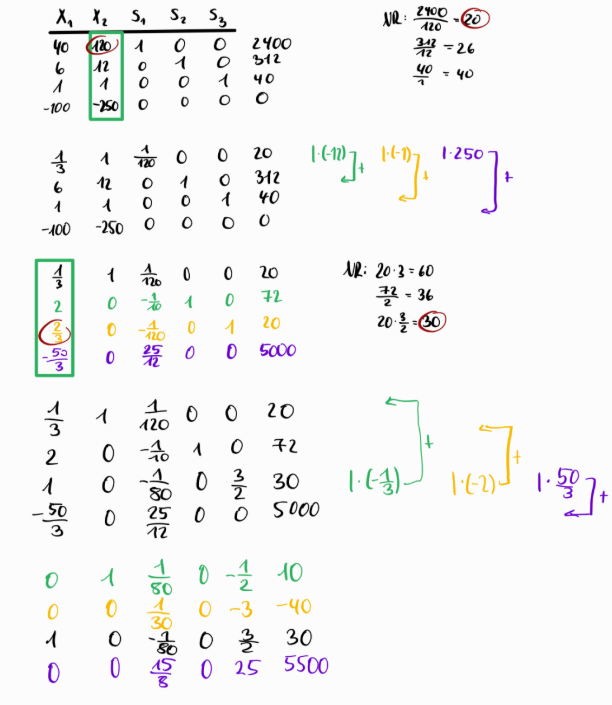 X₁ X₂ S₁ S₂ S₃
40 120 1 0 0 2400
6 12 0 1 0 312
1 1 0 0 1 40
-100 -250 0 0 0 0
NR: 2400/120 = 20
312/12 = 26
40/1 = 40
1/3 1 1/120 0 0 20
6 12 0 1 0 312
1 1 0 0 1 40
-100 -250 0 0 0 0
|·(-12) + |·(-1) + |·250 +
1/3 1 1/120 0 0 20
2 0 -1/10 1 0 72
2/3 0 -1/120 0 1 20
-50/3 0 25/12 0 0 5000
NR: 20·3 = 60
72/2 = 36
20·3/2 = 30
1/3 1 1/120 0 0 20
2 0 -1/10 1 0 72
1 0 -1/80 0 3/2 30
-50/3 0 25/12 0 0 5000
|·(-1/3) + |·(-2) + |·50/3 +
0 1 1/80 0 -1/2 10
0 0 1/30 0 -3 -40
1 0 -1/80 0 3/2 30
0 0 15/8 0 25 5500